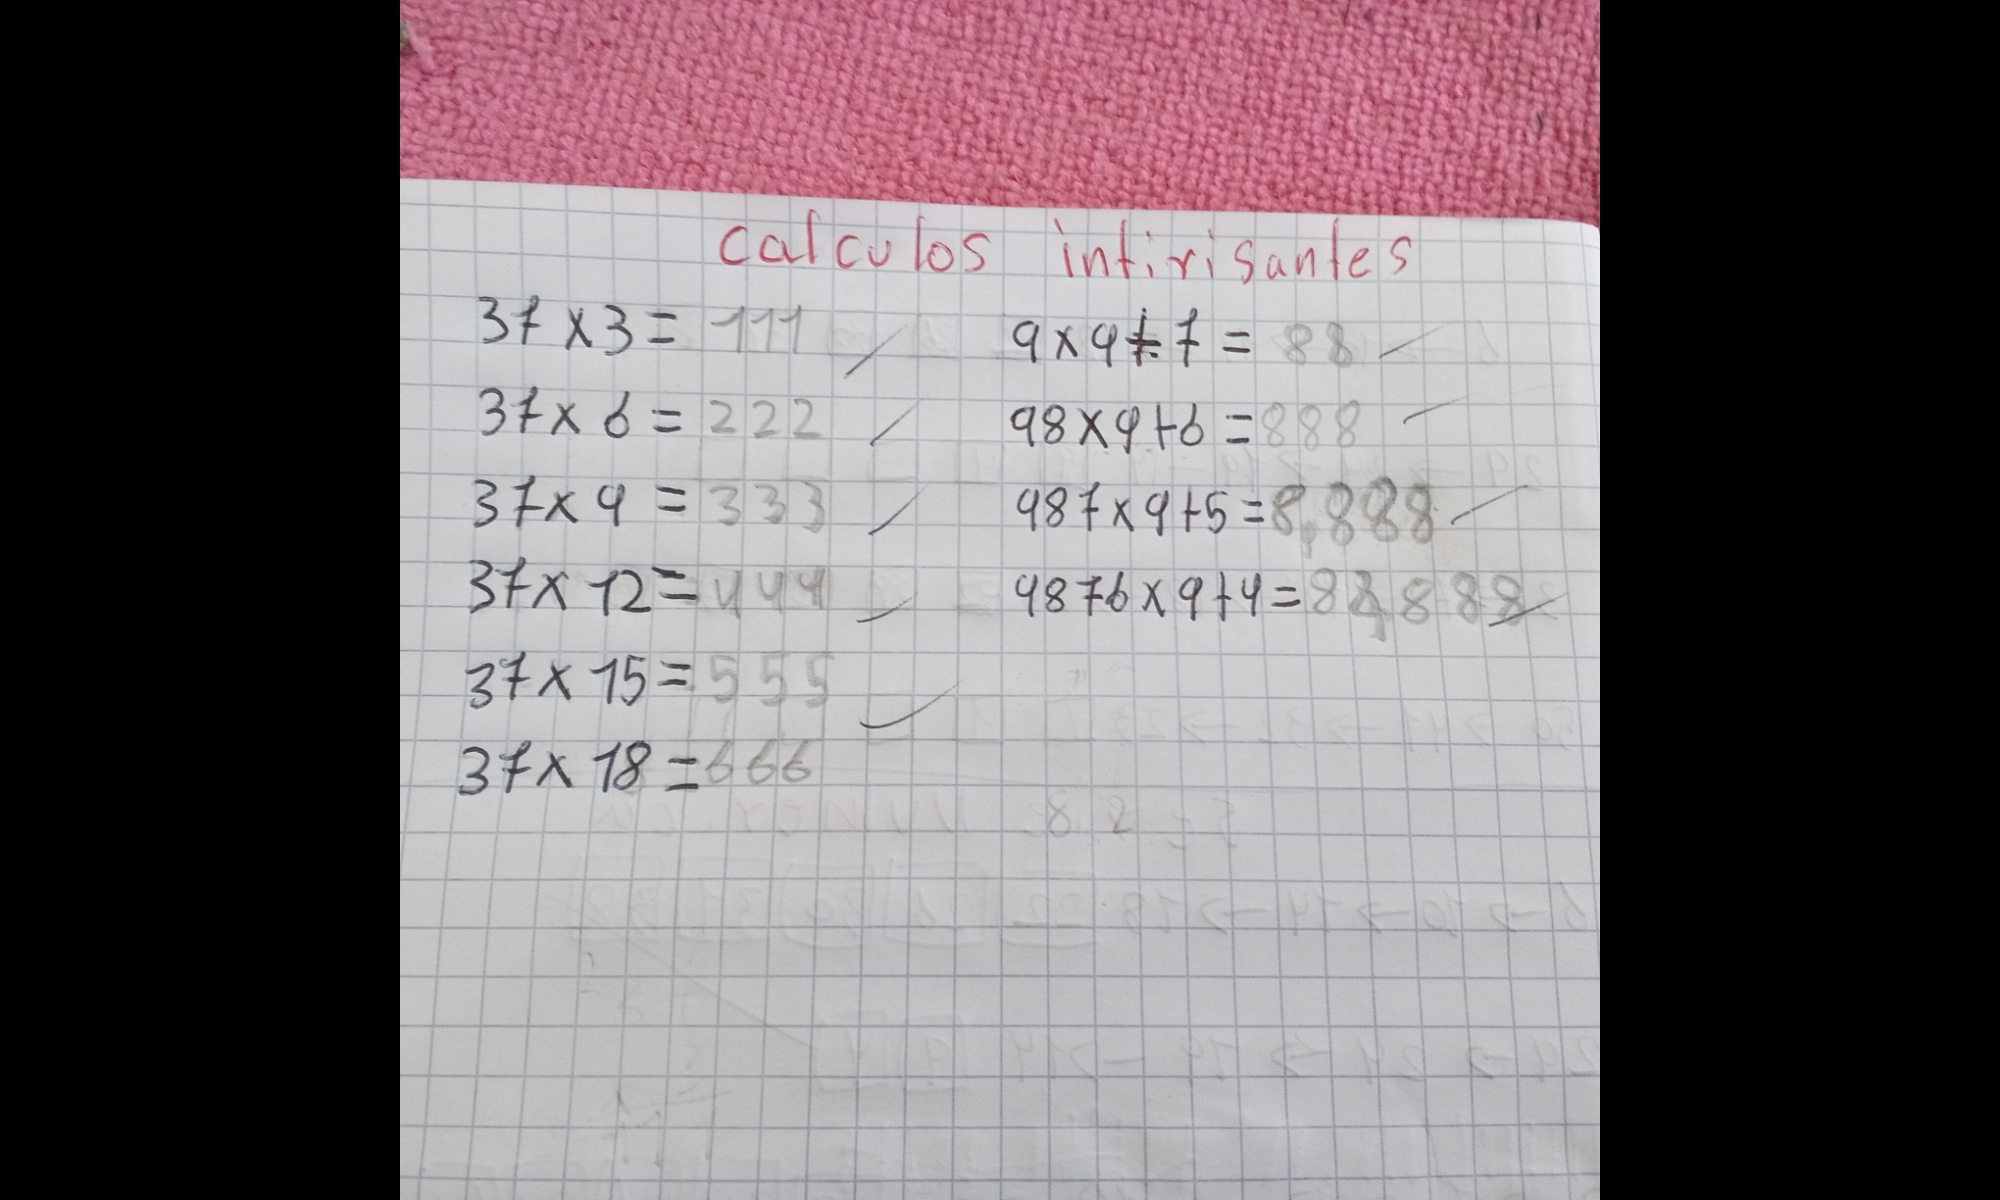 calculos intirisantes
37 x 3 = 111
37 x 6 = 222
37 x 9 = 333
37 x 12 = 444
37 x 15 = 555
37 x 18 = 666
9 x 9 + 7 = 88
98 x 9 + 6 = 888
987 x 9 + 5 = 8,888
9876 x 9 + 4 = 88,888